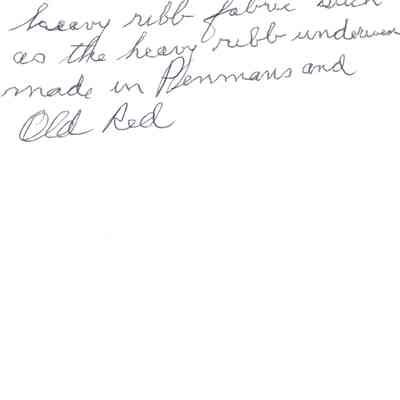 heavy ribb fabric such
as the heavy ribb underwear
made in Penmans and
Old Red